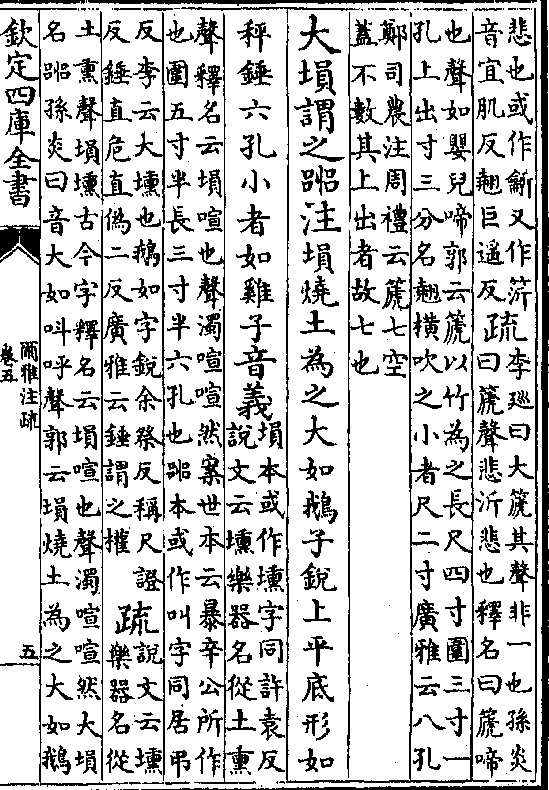 悲也或作𪛋又作沂疏李廵曰大篪其聲非一也孫炎
音宜肌反翹巨遥反疏曰篪聲悲沂悲也釋名曰篪啼
也聲如嬰兒啼郭云篪以竹為之長尺四寸圍三寸一
孔上出寸三分名翹横吹之小者尺二寸廣雅云八孔
鄭司農注周禮云篪七空
蓋不數其上出者故七也
大塤謂之嘂注塤燒土為之大如鵝子銳上平底形如
秤錘六孔小者如雞子音義塤本或作壎字同許袁反
說文云壎樂器名從土熏
聲釋名云塤喧也聲濁喧喧然案世本云暴辛公所作
也圍五寸半長三寸半六孔也嘂本或作叫字同居弔
反李云大壎也鵝如字銳余祭反稱尺證
反錘直危直僞二反廣雅云錘謂之權
疏說文云壎
樂器名從
土熏聲塤壎古今字釋名云塤喧也聲濁喧喧然大塤
名嘂孫炎曰音大如叫呼聲郭云塤燒土為之大如鵝
欽定四庫全書
爾雅注疏
卷五
五